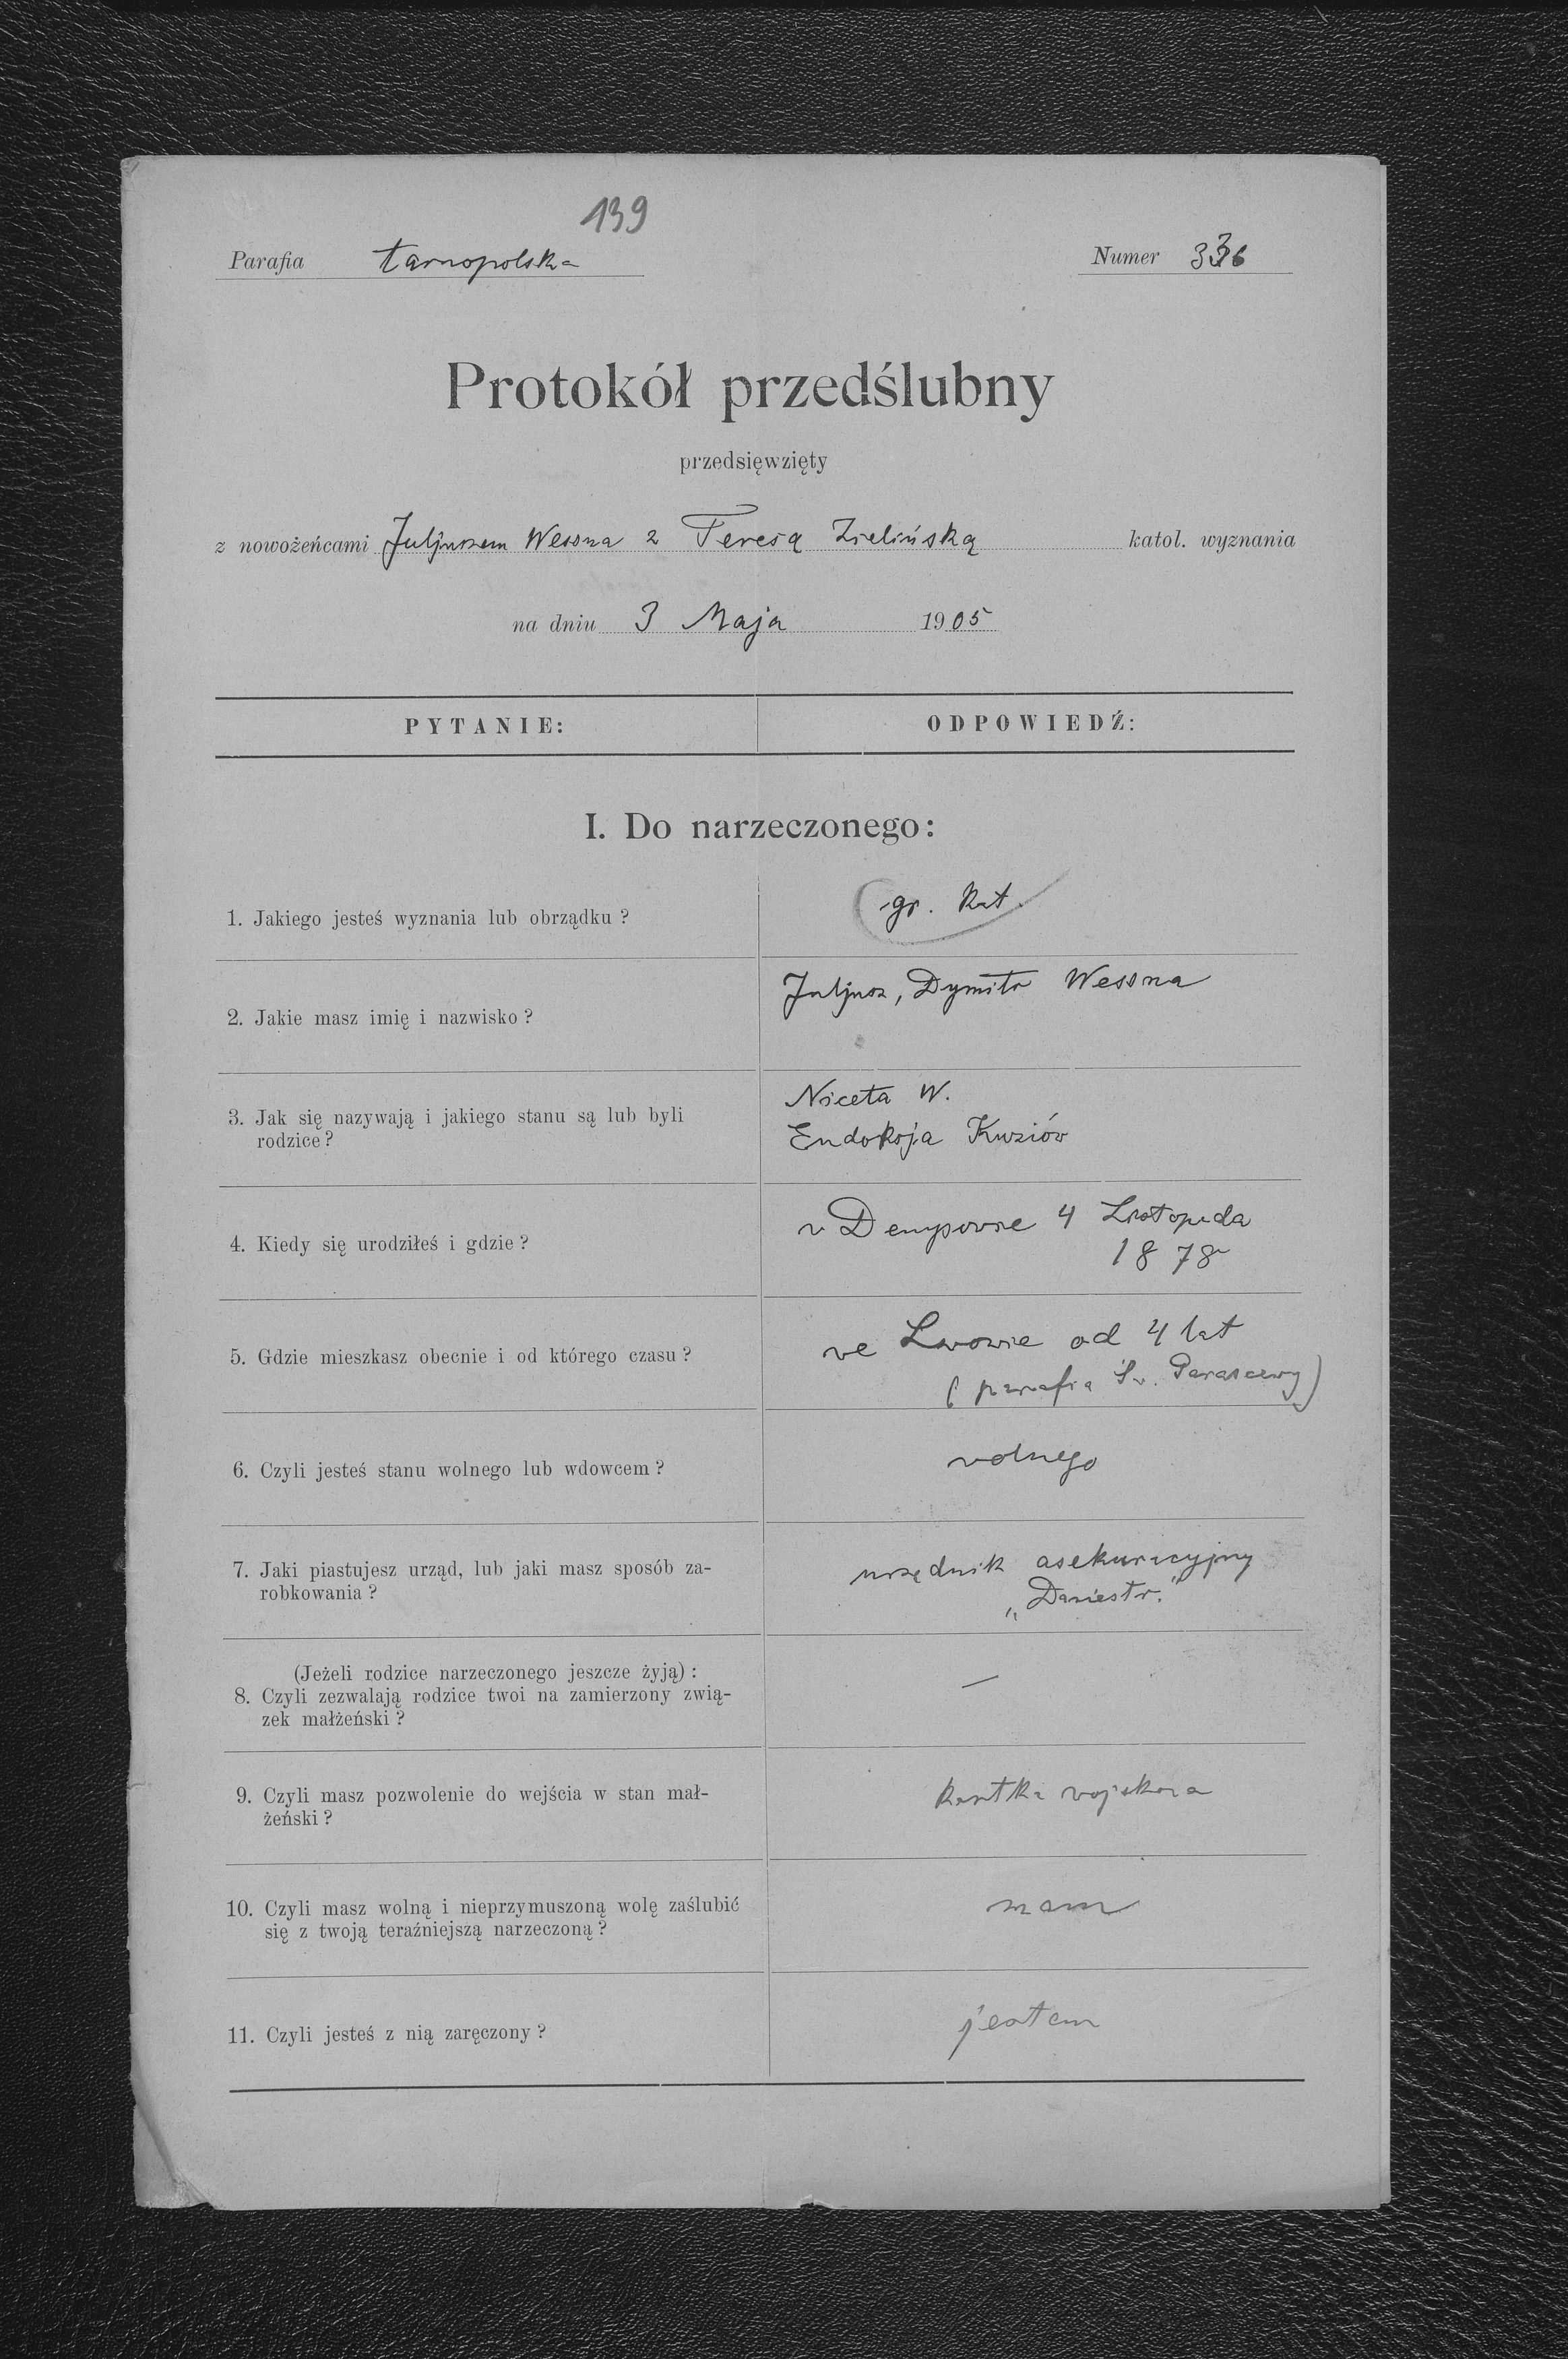 139
Parafia tarnopolska Numer 336
Protokół przedślubny
przedsięwzięty
z nowożeńcami Juljuszem Wessna z Teresą Zielińską katol. wyznania
na dniu 3 Maja 1905
PYTANIE: ODPOWIEDŹ:
I. Do narzeczonego:
1. Jakiego jesteś wyznania lub obrządku? gr. kat.
2. Jakie masz imię i nazwisko? Juljusz, Dymitr Wessna
3. Jak się nazywają i jakiego stanu są lub byli
rodzice?
Niceta W.
Eudoksja Kuziów
4. Kiedy się urodziłeś i gdzie?
w Denysowie 4 Listopada
1878
5. Gdzie mieszkasz obecnie i od którego czasu?
we Lwowie od 4 lat
(parafia Św. Parascewy)
6. Czyli jesteś stanu wolnego lub wdowcem? wolnego
7. Jaki piastujesz urząd, lub jaki masz sposób za-
robkowania?
urzędnik asekuracyjny
„Dniestr."
(Jeżeli rodzice narzeczonego jeszcze żyją):
8. Czyli zezwalają rodzice twoi na zamierzony zwią-
zek małżeński?
—
9. Czyli masz pozwolenie do wejścia w stan mał-
żeński?
kartka wojskowa
10. Czyli masz wolną i nieprzymuszoną wolę zaślubić
się z twoją teraźniejszą narzeczoną?
mam
11. Czyli jesteś z nią zaręczony? jestem